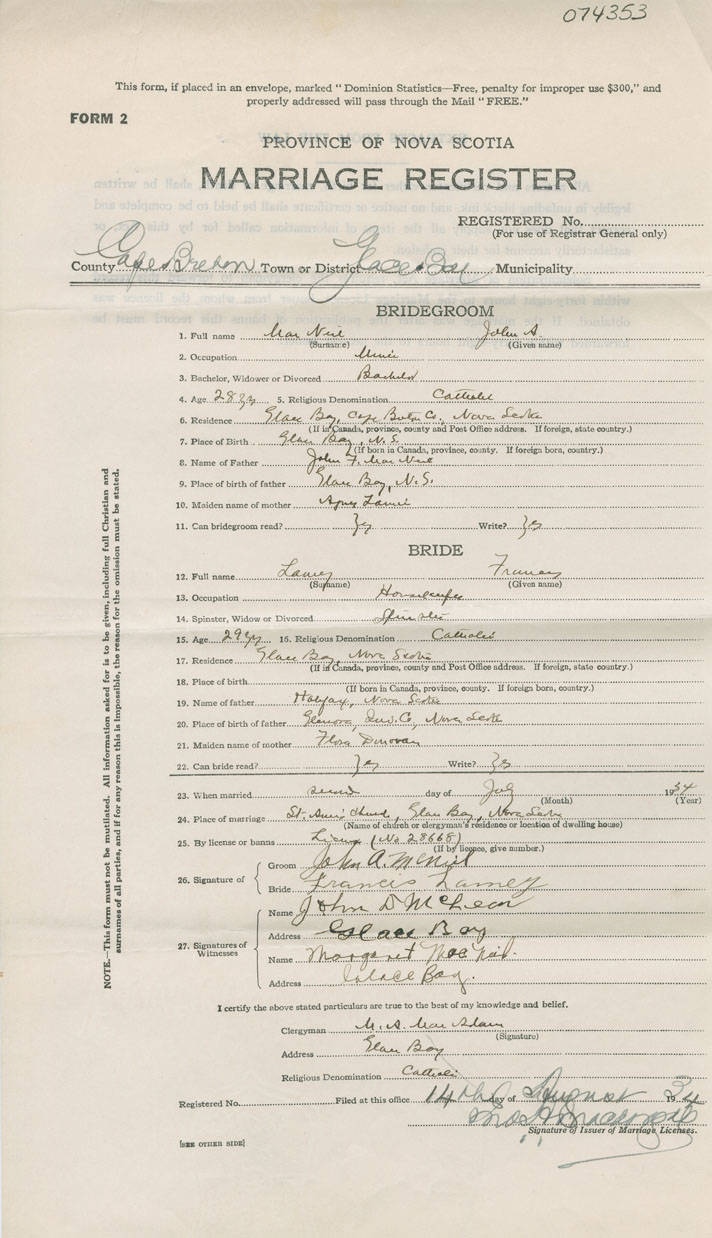 074353
This form, if placed in an envelope, marked "Dominion Statistics—Free, penalty for improper use $300," and
properly addressed will pass through the Mail "FREE."
FORM 2
PROVINCE OF NOVA SCOTIA
MARRIAGE REGISTER
REGISTERED No.
(For use of Registrar General only)
County Cape Breton Town or District Glace Bay Municipality
BRIDEGROOM
1. Full name Mac Neil John A.
(Surname) (Given name)
2. Occupation Miner
3. Bachelor, Widower or Divorced Bachelor
4. Age 28 yrs 5. Religious Denomination Catholic
6. Residence Glace Bay, Cape Breton Co., Nova Scotia
(If in Canada, province, county and Post Office address. If foreign, state country.)
7. Place of Birth Glace Bay, N.S.
(If born in Canada, province, county. If foreign born, country.)
8. Name of Father John F. Mac Neil
9. Place of birth of father Glace Bay, N.S.
10. Maiden name of mother Agnes
11. Can bridegroom read? Yes Write? Yes
BRIDE
12. Full name Lamey Frances
(Surname) (Given name)
13. Occupation Housekeeper
14. Spinster, Widow or Divorced Spinster
15. Age 29 yrs 16. Religious Denomination Catholic
17. Residence Glace Bay, Nova Scotia
(If in Canada, province, county and Post Office address. If foreign, state country.)
18. Place of birth
(If born in Canada, province, county. If foreign born, country.)
19. Name of father Halifax, Nova Scotia
20. Place of birth of father Glenora, Inv. Co., Nova Scotia
21. Maiden name of mother Flora Donovan
22. Can bride read? Yes Write? Yes
23. When married second day of July 1934
(Month) (Year)
24. Place of marriage St. Anne's Church, Glace Bay, Nova Scotia
(Name of church or clergyman's residence or location of dwelling house)
25. By license or banns License (No 28668)
(If by licence, give number.)
26. Signature of
Groom John A. McNeil
Bride Francis Lamey
27. Signatures of Witnesses
Name John D McLean
Address Glace Bay
Name Margaret MacNeil.
Address Glace Bay.
I certify the above stated particulars are true to the best of my knowledge and belief.
Clergyman M. A. Mac Adam
(Signature)
Address Glace Bay
Religious Denomination Catholic
Registered No. Filed at this office 14th day of August 1934
Signature of Issuer of Marriage Licenses.
[SEE OTHER SIDE]
NOTE.—This form must not be mutilated. All information asked for is to be given, including full Christian and
surnames of all parties, and if for any reason this is impossible, the reason for the omission must be stated.